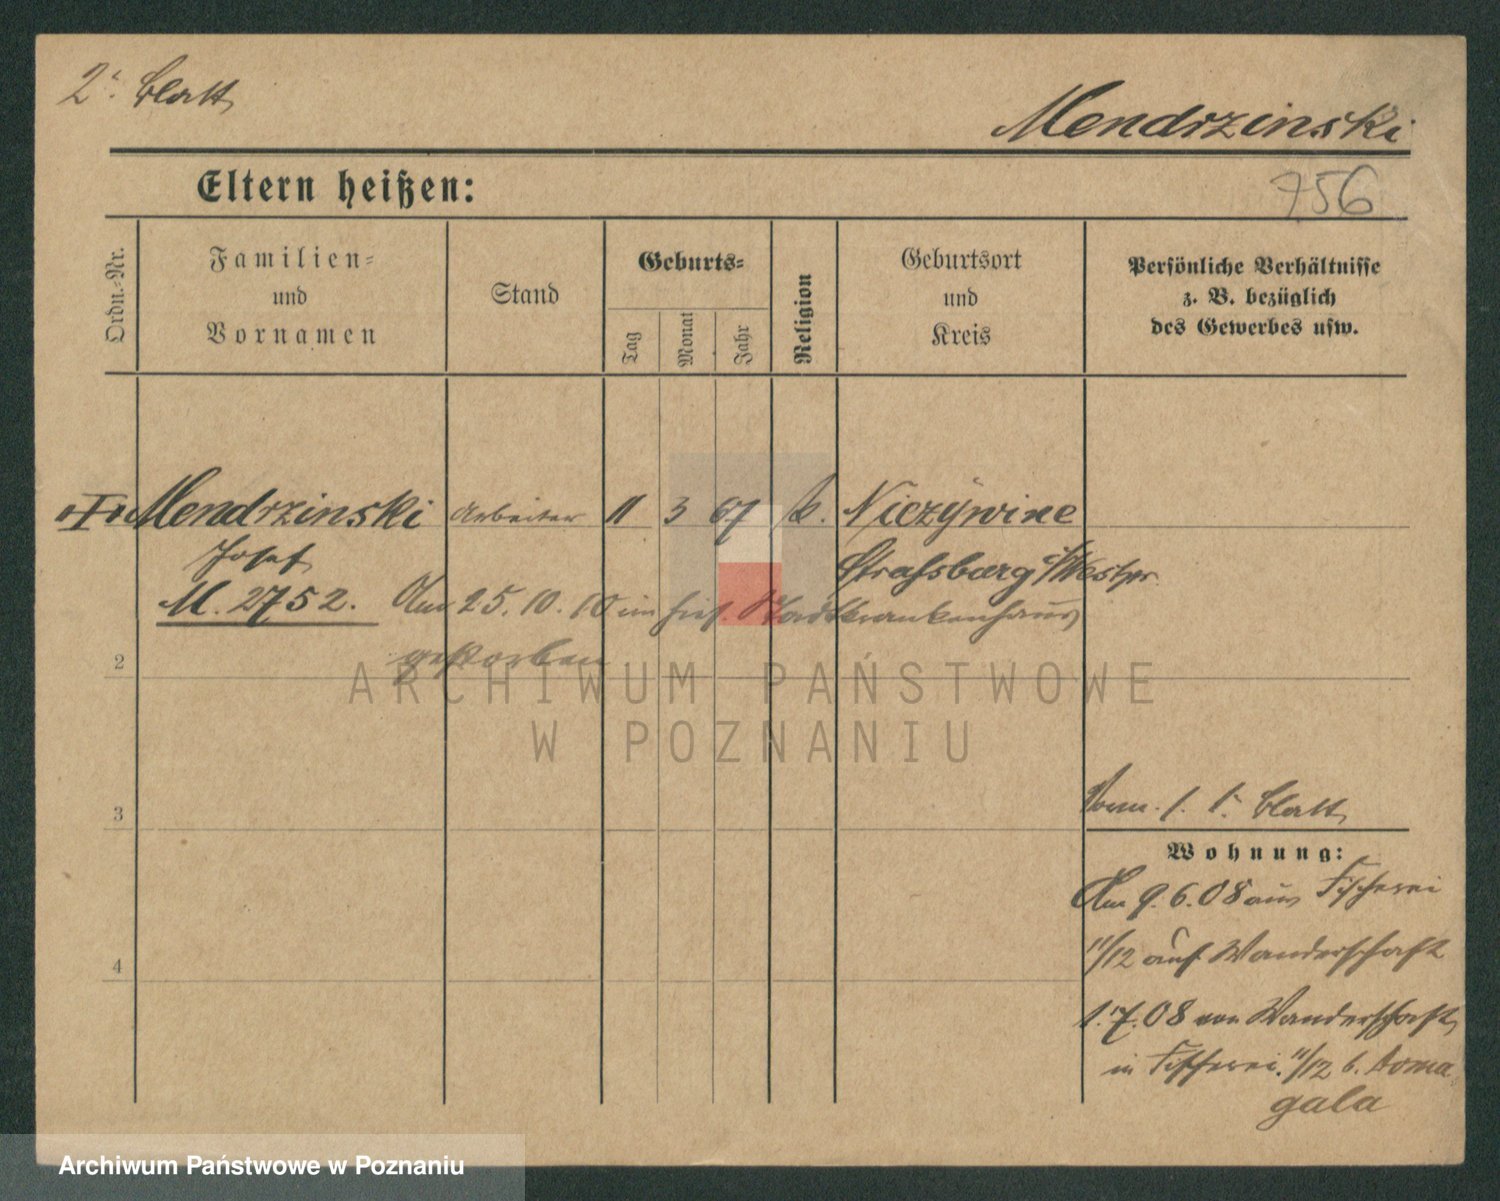 2. Blatt
Mendrzinski
Eltern heißen:
756
Ordn.-Nr.
Familien-
und
Vornamen
Stand
Geburts-
Tag
Monat
Jahr
Religion
Geburtsort
und
Kreis
Persönliche Verhältnisse
z. B. bezüglich
des Gewerbes usw.
Mendrzinski Arbeiter 11 3 67 k. Niezywine
Josef Strassburg i/Westpr.
M. 2752. Am 25. 10. 10 im hies. Stadtkrankenhaus
gestorben
2
ARCHIWUM PAŃSTWOWE
W POZNANIU
1. Blatt
3
Wohnung:
Am 9. 6. 08 aus Fischerei
11/12 auf Wanderschaft
4
1. 7. 08 von Wanderschaft
in Fischerei 11/12 b. Doma
gala
Archiwum Państwowe w Poznaniu